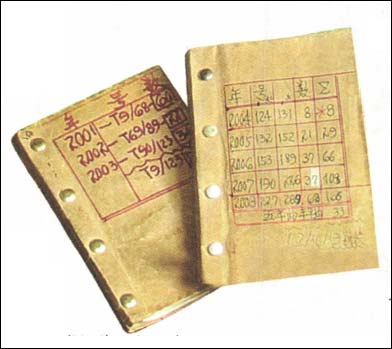 年 号
2001~T9/68-
2002-T69/89-
2003-T90/123
T9/123
年 号 数 Σ
2004 124 131 8 *8
2005 132 152 21 29
2006 153 189 37 66
2007 190 226 37 103
2008 227 289 63 166
五年 平均 33